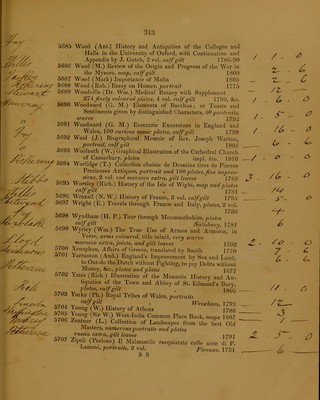 313
5685 Wood (Ant.) History and Antiquities of the Colleges and
Halls in the University of Oxford, with Continuation and
Appendix by J. Gutch, 2 vol. calf gilt 1786-90
1 - 1 - 0
5686 Wood (M.) Review of the Origin and Progress of the War in
the Mysore, map, calf gilt 1800
2 - 6
5687 Wood (Mark) Importance of Malta 1803
2 - 6
5688 Wood (Rob.) Essay on Homer, portrait 1775
- 12 -
5689 Woodville (Dr. Wm.) Medical Botany with Supplement
274 finely coloured plates, 4 vol. calf gilt 1790, &c.
1 - 6 - 0
5690 Woodward (G. M.) Elements of Bacchus; or Toasts and
Sentiments given by distinguished Characters, 40 portraits,
scarce 1792
1 - 5 - 0
5691 Woodward (G. M.) Eccentric Excursions in England and
Wales, 100 curious comic plates, calf gilt 1796
16 - 0
5692 Wool (J.) Biographical Memoir of Rev. Joseph Warton,
portrait, calf gilt 1806
6 - 6
5693 Woolnoth (W.) Graphical Illustration of the Cathedral Church
of Canterbury, plates impl. 4to. 1816
1 - 0
5694 Worlidge (T.) Collection choisie de Dessins tirés de Pierres
Precieuses Antiques, portrait and 180 plates, fine impressions, 2 vol. red morocco extra, gilt leaves 1768
3 - 16 - 0
5695 Worsley (Rich.) History of the Isle of Wight, map and plates
calf gilt 1781
- 14
5696 Wraxall (N. W.) History of France, 3 vol. calf gilt 1795
5697 Wright (E.) Travels through France and Italy, plates, 2 vol.
1730
4 -
5698 Wyndham (H. P.) Tour through Monmouthshire, plates
calf gilt Salisbury, 1781
5699 Wyrley (Wm.) The True Use of Armes and Armorie, in
Verse, arms coloured, title inlaid, very scarce
morocco extra, joints, and gilt leaves 1592
2 - 10 - 0
5700 Xenophon, Affairs of Greece, translated by Smith 1770
5701 Yarranton (And.) England's Improvement by Sea and Land,
to Out-do the Dutch without Fighting, to pay Debts without
Money, &c., plates and plans 1677
6 - 6
5702 Yates (Rich.) Illustration of the Monastic History and Antiquities of the Town and Abbey of St. Edmund's Bury,
plates, calf gilt 1805
11 - 0
5703 Yorke (Ph.) Royal Tribes of Wales, portraits
calf gilt Wrexham, 1799
- 12 -
5704 Young (W.) History of Athens 1786
5705 Young (Sir W.) West-India Common Place Book, maps 1807
- 3 -
5706 Zentner (L.) Collection of Landscapes from the best Old
Masters, numerous portraits and plates
russia extra, gilt leaves 1791
2 - 5 - 0
5707 Zipoli (Perlone) Il Malmantile racquistato colle note di P.
Lamoni, portraits, 2 vol. Firenze, 1731
- 6 -
S S